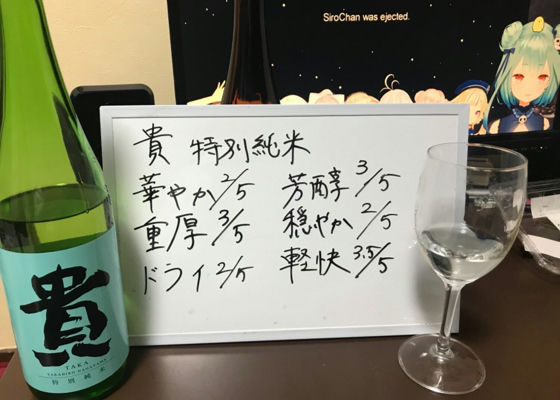 SiroChan was ejected.
貴 特別純米
華やか 2/5 芳醇 3/5
重厚 3/5 穏やか 2/5
ドライ 2/5 軽快 3.5/5
貴
TAKA
TAKAHIRO NAGAYAMA
特別純米